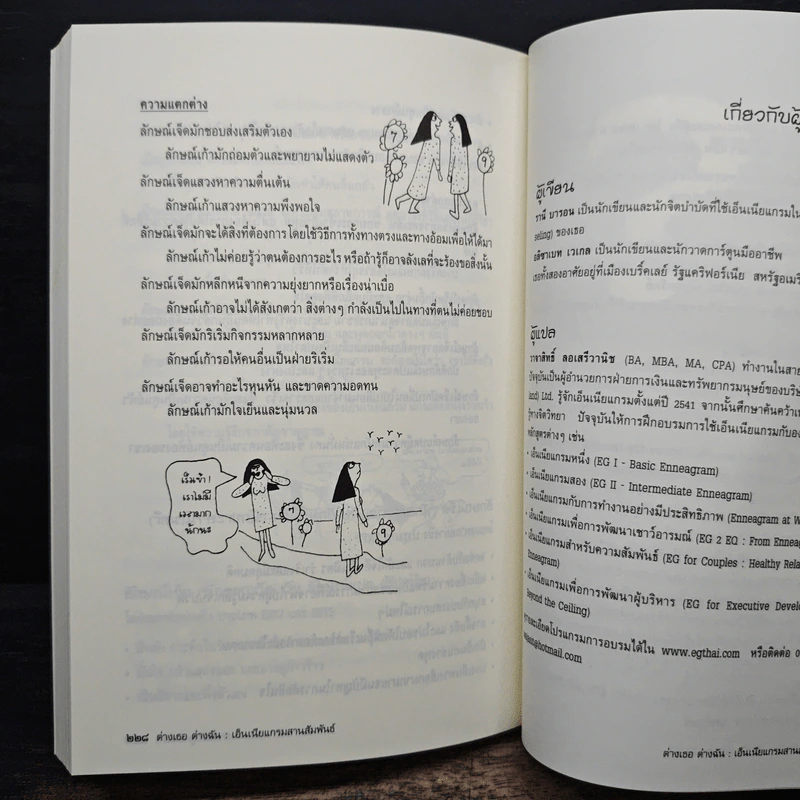 ความแตกต่าง
ลักษณ์เจ็ดมักชอบส่งเสริมตัวเอง
ลักษณ์เก้ามักถ่อมตัวและพยายามไม่แสดงตัว
ลักษณ์เจ็ดแสวงหาความตื่นเต้น
ลักษณ์เก้าแสวงหาความพึงพอใจ
ลักษณ์เจ็ดมักจะได้สิ่งที่ต้องการ โดยใช้วิธีการทั้งทางตรงและทางอ้อมเพื่อให้ได้มา
ลักษณ์เก้าไม่ค่อยรู้ว่าตนต้องการอะไร หรือถ้ารู้ก็อาจลังเลที่จะร้องขอสิ่งนั้น
ลักษณ์เจ็ดมักหลีกหนีจากความยุ่งยากหรือเรื่องน่าเบื่อ
ลักษณ์เก้าอาจไม่ได้สังเกตว่า สิ่งต่างๆ กำลังเป็นไปในทางที่ตนไม่ค่อยชอบ
ลักษณ์เจ็ดมักริเริ่มกิจกรรมหลากหลาย
ลักษณ์เก้ารอให้คนอื่นเป็นฝ่ายริเริ่ม
ลักษณ์เจ็ดอาจทำอะไรหุนหัน และขาดความอดทน
ลักษณ์เก้ามักใจเย็นและนุ่มนวล
7
9
7
9
เร็วเข้า!
เราไม่มี
เวลามาก
นักนะ
๒๒๘ ต่างเธอ ต่างฉัน : เอ็นเนียแกรมสานสัมพันธ์
เกี่ยวกับผู้
ผู้เขียน
รานี บารอน เป็นนักเขียนและนักจิตบำบัดที่ใช้เอ็นเนียแกรมใน
seling) ของเธอ
อลิซาเบท เวเกล เป็นนักเขียนและนักวาดการ์ตูนมืออาชีพ
เธอทั้งสองอาศัยอยู่ที่เมืองเบิร์คเลย์ รัฐแคริฟอร์เนีย สหรัฐอเมริ
ผู้แปล
วาจาสิทธิ์ ลอเสรีวานิช (BA, MBA, MA, CPA) ทำงานในสาย
ปัจจุบันเป็นผู้อำนวยการฝ่ายการเงินและทรัพยากรมนุษย์ของบริษั
land) Ltd. รู้จักเอ็นเนียแกรมตั้งแต่ปี 2541 จากนั้นศึกษาค้นคว้า
ทางจิตวิทยา ปัจจุบันให้การฝึกอบรมการใช้เอ็นเนียแกรมกับอง
หลักสูตรต่างๆ เช่น
• เอ็นเนียแกรมหนึ่ง (EG I - Basic Enneagram)
• เอ็นเนียแกรมสอง (EG II - Intermediate Enneagram)
• เอ็นเนียแกรมกับการทำงานอย่างมีประสิทธิภาพ (Enneagram at W
• เอ็นเนียแกรมเพื่อการพัฒนาเชาว์อารมณ์ (EG 2 EQ : From Enneag
• เอ็นเนียแกรมสำหรับความสัมพันธ์ (EG for Couples : Healthy Rela
Enneagram)
• เอ็นเนียแกรมเพื่อการพัฒนาผู้บริหาร (EG for Executive Develo
Beyond the Ceiling)
รายละเอียดโปรแกรมการอบรมได้ใน www.egthai.com หรือติดต่อ 0
@hotmail.com
ต่างเธอ ต่างฉัน : เอ็นเนียแกรมสาน